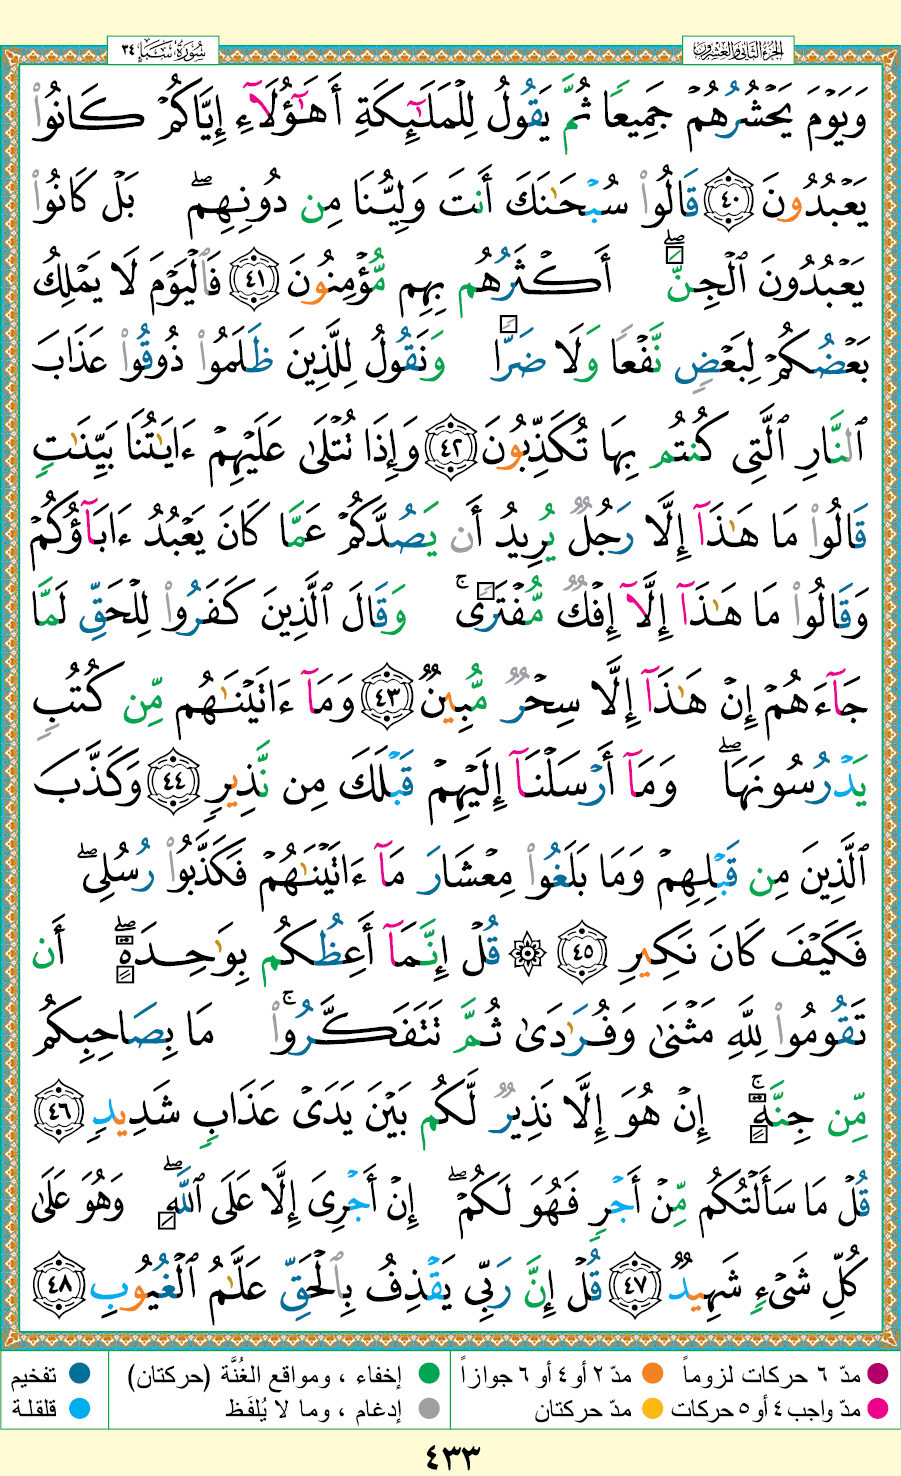 سُورَةُ سَبَإٍ ٣٤
الجزء الثاني والعشرون
وَيَوْمَ يَحْشُرُهُمْ جَمِيعًا ثُمَّ يَقُولُ لِلْمَلَـٰٓئِكَةِ أَهَـٰٓؤُلَآءِ إِيَّاكُمْ كَانُوا۟
يَعْبُدُونَ ٤٠ قَالُوا۟ سُبْحَـٰنَكَ أَنتَ وَلِيُّنَا مِن دُونِهِم ۖ بَلْ كَانُوا۟
يَعْبُدُونَ ٱلْجِنَّ ۖ أَكْثَرُهُم بِهِم مُّؤْمِنُونَ ٤١ فَٱلْيَوْمَ لَا يَمْلِكُ
بَعْضُكُمْ لِبَعْضٍ نَّفْعًا وَلَا ضَرًّا وَنَقُولُ لِلَّذِينَ ظَلَمُوا۟ ذُوقُوا۟ عَذَابَ
ٱلنَّارِ ٱلَّتِى كُنتُم بِهَا تُكَذِّبُونَ ٤٢ وَإِذَا تُتْلَىٰ عَلَيْهِمْ ءَايَـٰتُنَا بَيِّنَـٰتٍ
قَالُوا۟ مَا هَـٰذَآ إِلَّا رَجُلٌ يُرِيدُ أَن يَصُدَّكُمْ عَمَّا كَانَ يَعْبُدُ ءَابَآؤُكُمْ
وَقَالُوا۟ مَا هَـٰذَآ إِلَّآ إِفْكٌ مُّفْتَرًى ۚ وَقَالَ ٱلَّذِينَ كَفَرُوا۟ لِلْحَقِّ لَمَّا
جَآءَهُمْ إِنْ هَـٰذَآ إِلَّا سِحْرٌ مُّبِينٌ ٤٣ وَمَآ ءَاتَيْنَـٰهُم مِّن كُتُبٍ
يَدْرُسُونَهَا ۖ وَمَآ أَرْسَلْنَآ إِلَيْهِمْ قَبْلَكَ مِن نَّذِيرٍ ٤٤ وَكَذَّبَ
ٱلَّذِينَ مِن قَبْلِهِمْ وَمَا بَلَغُوا۟ مِعْشَارَ مَآ ءَاتَيْنَـٰهُمْ فَكَذَّبُوا۟ رُسُلِى ۖ
فَكَيْفَ كَانَ نَكِيرِ ٤٥ ۞ قُلْ إِنَّمَآ أَعِظُكُم بِوَٰحِدَةٍ ۖ أَن
تَقُومُوا۟ لِلَّهِ مَثْنَىٰ وَفُرَٰدَىٰ ثُمَّ تَتَفَكَّرُوا۟ ۚ مَا بِصَاحِبِكُم
مِّن جِنَّةٍ ۚ إِنْ هُوَ إِلَّا نَذِيرٌ لَّكُم بَيْنَ يَدَىْ عَذَابٍ شَدِيدٍ ٤٦
قُلْ مَا سَأَلْتُكُم مِّنْ أَجْرٍ فَهُوَ لَكُمْ ۖ إِنْ أَجْرِىَ إِلَّا عَلَى ٱللَّهِ ۖ وَهُوَ عَلَىٰ
كُلِّ شَىْءٍ شَهِيدٌ ٤٧ قُلْ إِنَّ رَبِّى يَقْذِفُ بِٱلْحَقِّ عَلَّـٰمُ ٱلْغُيُوبِ ٤٨
مدّ ٦ حركات لزوماً مدّ ٢ أو ٤ أو ٦ جوازاً إخفاء ، ومواقع الغُنَّة (حركتان) تفخيم
مدّ واجب ٤ أو ٥ حركات مدّ حركتان إدغام ، وما لا يُلفَظ قلقلة
٤٣٣